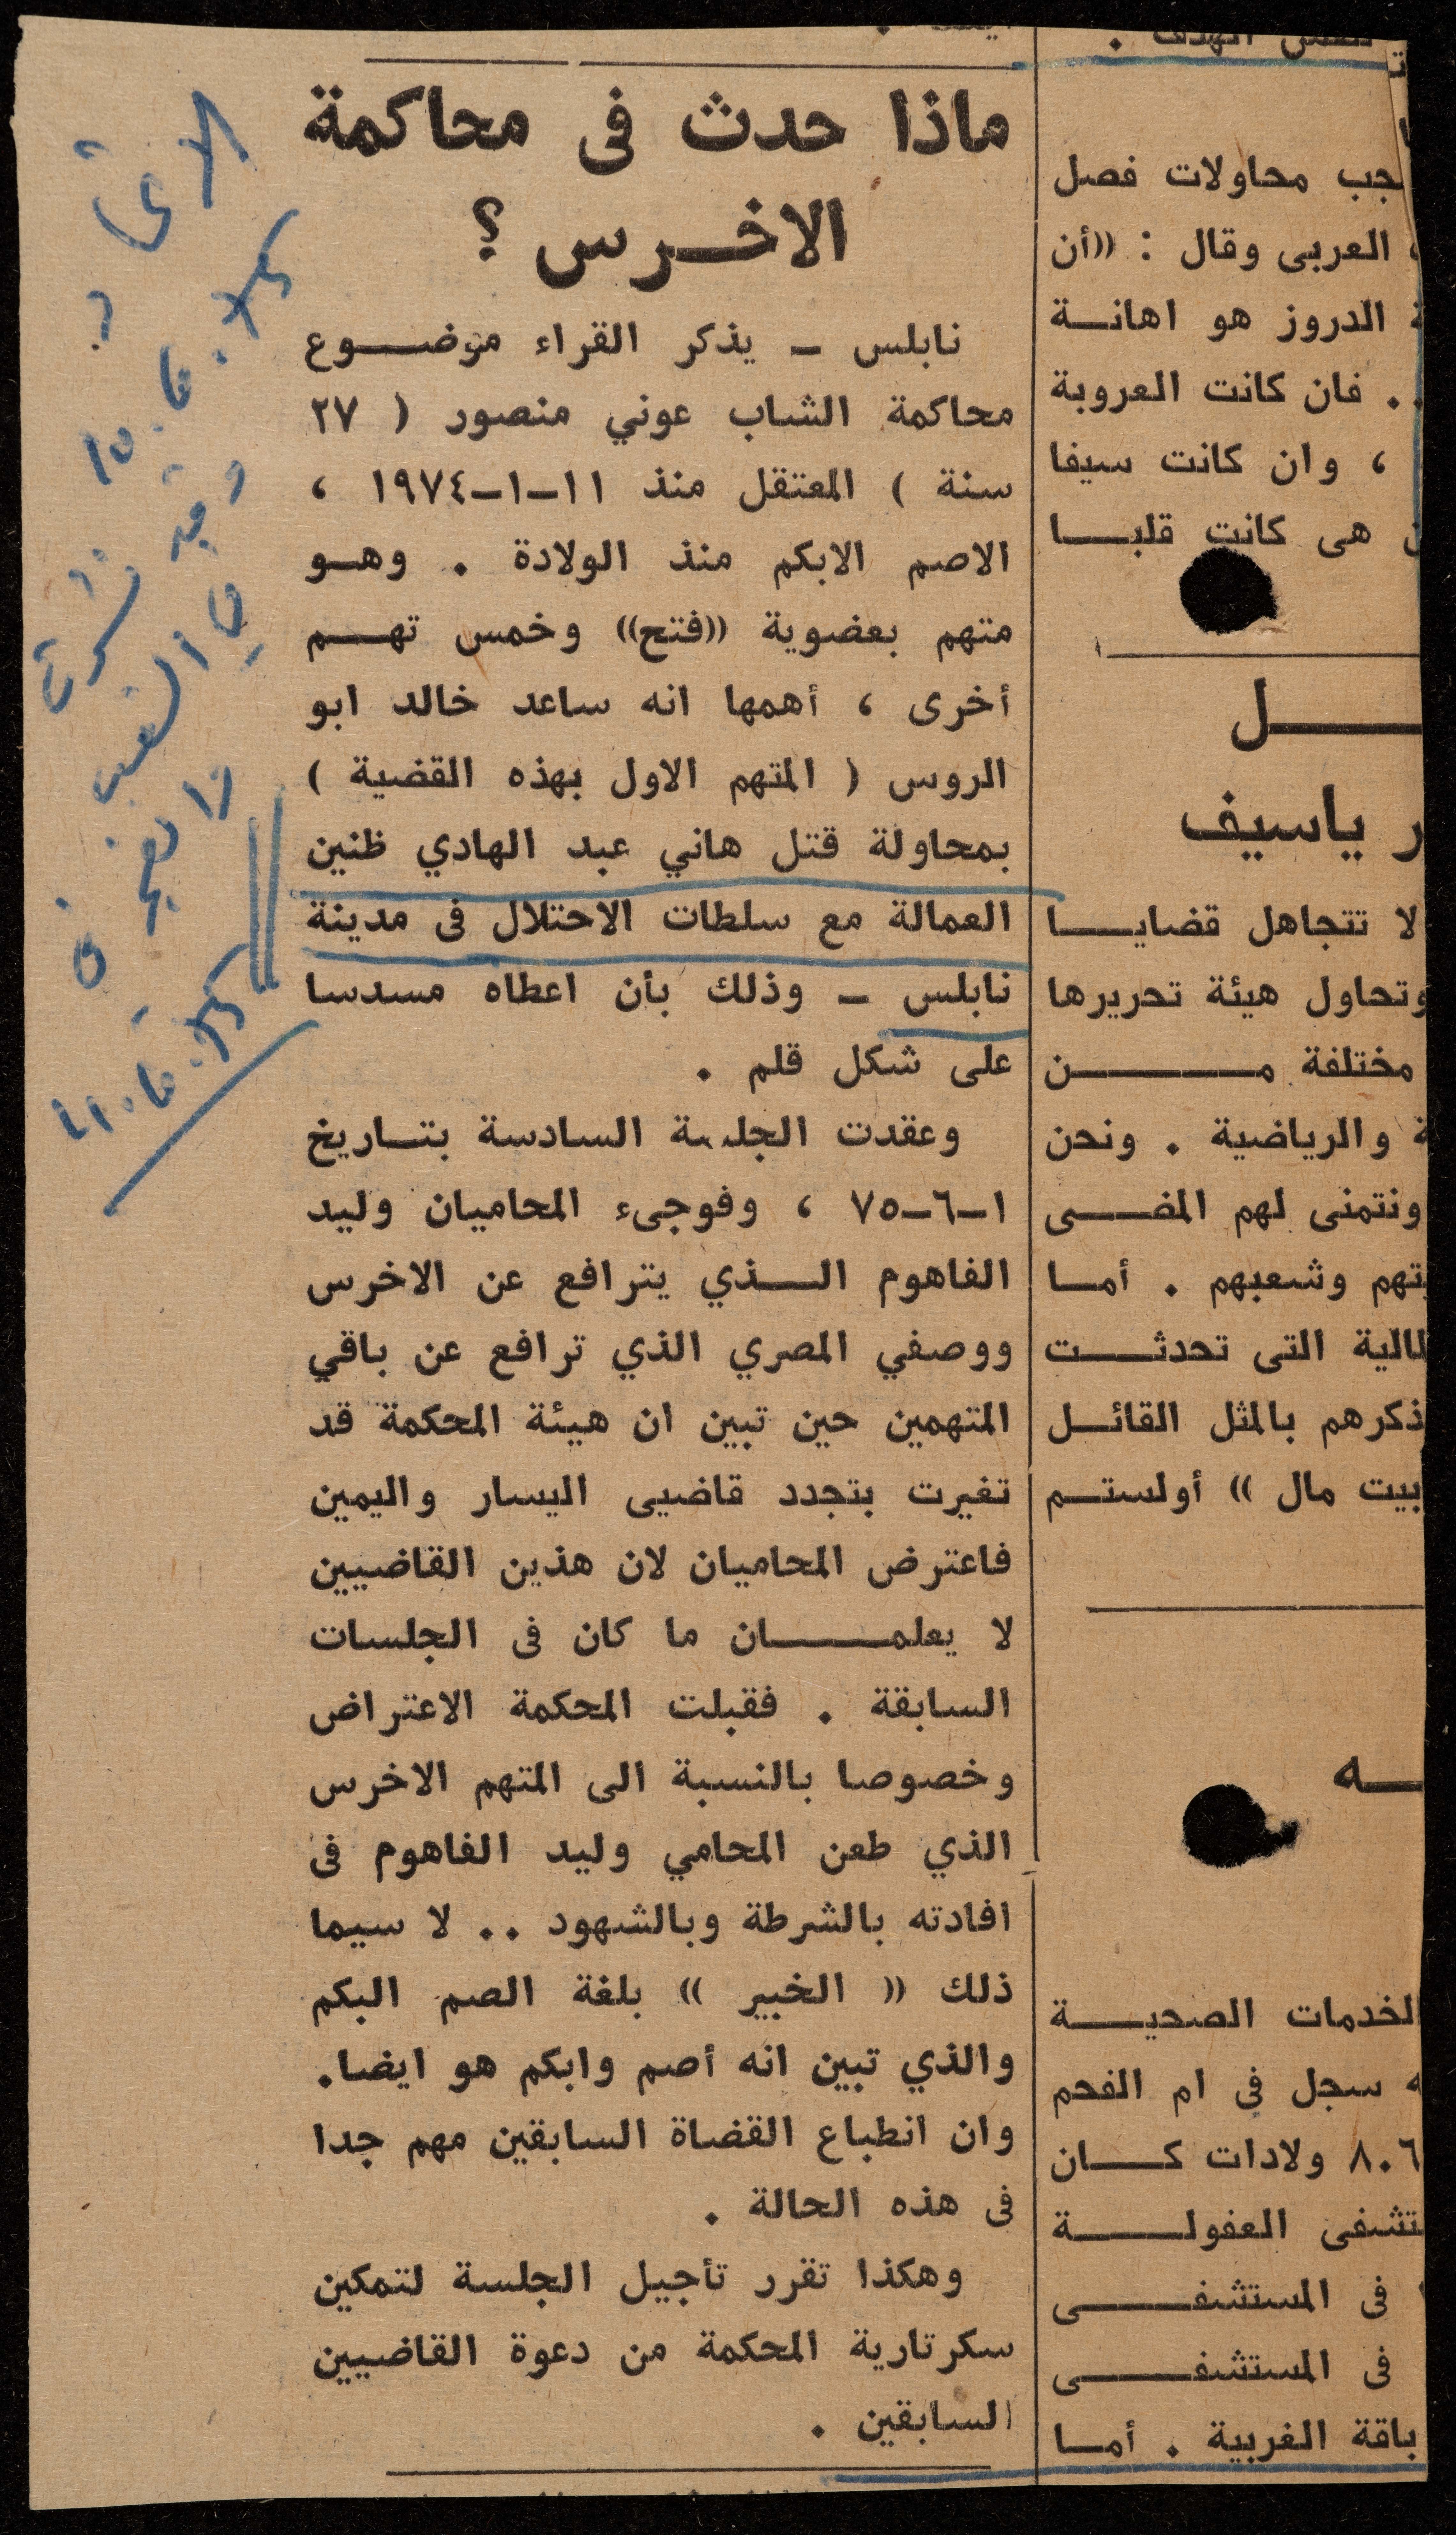 ماذا حدث فى محاكمة
الاخرس ؟
نابلس - يذكر القراء موضوع
محاكمة الشاب عوني منصور ( ٢٧
سنة ) المعتقل منذ ١١-١-١٩٧٤ ،
الاصم الابكم منذ الولادة . وهو
متهم بعضوية ((فتح)) وخمس تهم
أخرى ، أهمها انه ساعد خالد ابو
الروس ( المتهم الاول بهذه القضية )
بمحاولة قتل هاني عبد الهادي ظنين
العمالة مع سلطات الاحتلال فى مدينة
نابلس - وذلك بأن اعطاه مسدسا
على شكل قلم .
وعقدت الجلسة السادسة بتاريخ
١-٦-٧٥ ، وفوجىء المحاميان وليد
الفاهوم الذي يترافع عن الاخرس
ووصفي المصري الذي ترافع عن باقي
المتهمين حين تبين ان هيئة المحكمة قد
تغيرت بتجدد قاضيى اليسار واليمين
فاعترض المحاميان لان هذين القاضيين
لا يعلمان ما كان فى الجلسات
السابقة . فقبلت المحكمة الاعتراض
وخصوصا بالنسبة الى المتهم الاخرس
الذي طعن المحامي وليد الفاهوم فى
افادته بالشرطة وبالشهود .. لا سيما
ذلك (( الخبير )) بلغة الصم البكم
والذي تبين انه أصم وابكم هو ايضا.
وان انطباع القضاة السابقين مهم جدا
فى هذه الحالة .
وهكذا تقرر تأجيل الجلسة لتمكين
سكرتارية المحكمة من دعوة القاضيين
السابقين .
محاولات فصل
العربى وقال : ((أن
الدروز هو اهانة
. . فان كانت العروبة
، وان كانت سيفا
هى كانت قلبا
ياسيف
لا تتجاهل قضايا
وتحاول هيئة تحريرها
مختلفة من
والرياضية . ونحن
ونتمنى لهم المضى
وشعبهم . أما
التى تحدثت
بالمثل القائل
بيت مال )) أولستم
الخدمات الصحية
سجل فى ام الفحم
٨٠٦ ولادات كان
العفولة
فى المستشفى
فى المستشفى
باقة الغربية . أما